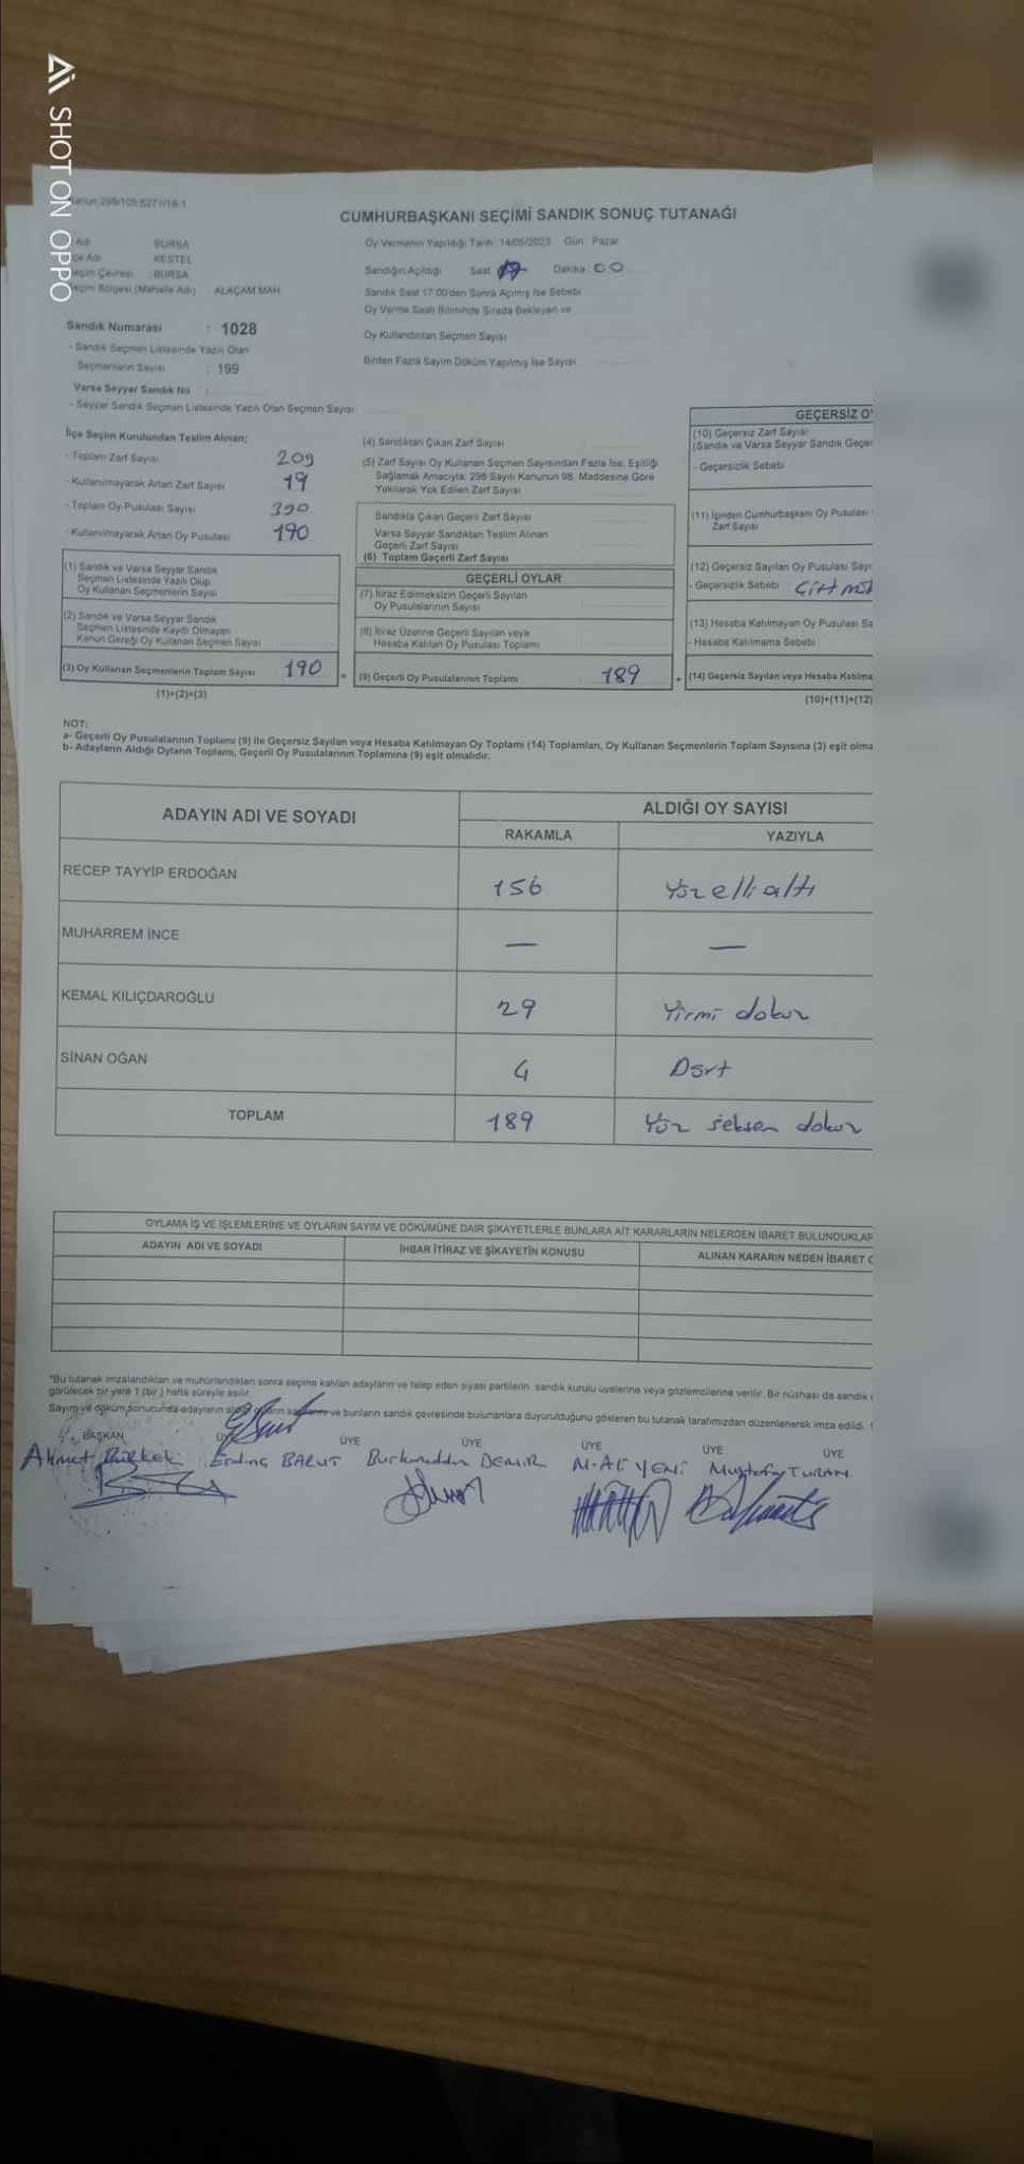 SHOT ON OPPO
CUMHURBAŞKANI SEÇİMİ SANDIK SONUÇ TUTANAĞI
BURSA
KESTEL
BURSA
Seçim Bölgesi (Mahalle Adı) ALAÇAM MAH
Oy Vermenin Yapıldığı Tarih: 14/05/2023 Gün: Pazar
Sandığın Açıldığı Saat 17 Dakika 00
Sandık Saat 17:00'den Sonra Açılmış İse Sebebi
Oy Verme Saati Bitiminde Sırada Bekleyen ve
Oy Kullandırılan Seçmen Sayısı
Birden Fazla Sayım Döküm Yapılmış İse Sayısı
Sandık Numarası : 1028
- Sandık Seçmen Listesinde Yazılı Olan
Seçmenlerin Sayısı : 199
Varsa Seyyar Sandık No :
- Seyyar Sandık Seçmen Listesinde Yazılı Olan Seçmen Sayısı
İlçe Seçim Kurulundan Teslim Alınan;
- Toplam Zarf Sayısı 209
- Kullanılmayarak Artan Zarf Sayısı 19
- Toplam Oy Pusulası Sayısı
- Kullanılmayarak Artan Oy Pusulası 190
(1) Sandık ve Varsa Seyyar Sandık
Seçmen Listesinde Yazılı Olup
Oy Kullanan Seçmenlerin Sayısı
(2) Sandık ve Varsa Seyyar Sandık
Seçmen Listesinde Kayıtlı Olmayan
Kanun Gereği Oy Kullanan Seçmen Sayısı
(3) Oy Kullanan Seçmenlerin Toplam Sayısı 190
(1)+(2)=(3)
(4) Sandıktan Çıkan Zarf Sayısı
(5) Zarf Sayısı Oy Kullanan Seçmen Sayısından Fazla İse, Eşitliği
Sağlamak Amacıyla; 298 Sayılı Kanunun 98. Maddesine Göre
Yakılarak Yok Edilen Zarf Sayısı
Sandıkta Çıkan Geçerli Zarf Sayısı
Varsa Seyyar Sandıktan Teslim Alınan
Geçerli Zarf Sayısı
(6) Toplam Geçerli Zarf Sayısı
GEÇERLİ OYLAR
(7) İtiraz Edilmeksizin Geçerli Sayılan
Oy Pusulalarının Sayısı
(8) İtiraz Üzerine Geçerli Sayılan veya
Hesaba Katılan Oy Pusulası Toplamı
(9) Geçerli Oy Pusulalarının Toplamı 189
GEÇERSİZ O
(10) Geçersiz Zarf Sayısı
(Sandık ve Varsa Seyyar Sandık Geçer
- Geçersizlik Sebebi
(11) İçinden Cumhurbaşkanı Oy Pusulası
Zarf Sayısı
(12) Geçersiz Sayılan Oy Pusulası Say
- Geçersizlik Sebebi Çift
(13) Hesaba Katılmayan Oy Pusulası Sa
- Hesaba Katılmama Sebebi
(14) Geçersiz Sayılan veya Hesaba Katılma
(10)+(11)+(12)
NOT:
a- Geçerli Oy Pusulalarının Toplamı (9) ile Geçersiz Sayılan veya Hesaba Katılmayan Oy Toplamı (14) Toplamları, Oy Kullanan Seçmenlerin Toplam Sayısına (3) eşit olma
b- Adayların Aldığı Oyların Toplamı, Geçerli Oy Pusulalarının Toplamına (9) eşit olmalıdır.
ADAYIN ADI VE SOYADI ALDIĞI OY SAYISI
RAKAMLA YAZIYLA
RECEP TAYYİP ERDOĞAN 156 Yüz elli altı
MUHARREM İNCE — —
KEMAL KILIÇDAROĞLU 29 Yirmi dokuz
SİNAN OĞAN 4 Dört
TOPLAM 189 Yüz seksen dokuz
OYLAMA İŞ VE İŞLEMLERİNE VE OYLARIN SAYIM VE DÖKÜMÜNE DAİR ŞİKAYETLERLE BUNLARA AİT KARARLARIN NELERDEN İBARET BULUNDUKLAR
ADAYIN ADI VE SOYADI İHBAR İTİRAZ VE ŞİKAYETİN KONUSU ALINAN KARARIN NEDEN İBARET O
*Bu tutanak imzalandıktan ve mühürlendikten sonra seçime katılan adayların ve talep eden siyasi partilerin, sandık kurulu üyelerine veya gözlemcilerine verilir. Bir nüshası da sandık
görülecek bir yere 1 (bir) hafta süreyle asılır.
Sayım ve döküm sonucunda adayların ve bunların sandık çevresinde bulunanlara duyurulduğunu gösteren bu tutanak tarafımızdan düzenlenerek imza edildi.
BAŞKAN ÜYE ÜYE ÜYE ÜYE ÜYE
Ahmet Erdinç BARUT Burhaneddin DEMİR M. Ali YENİ Mustafa TURAN